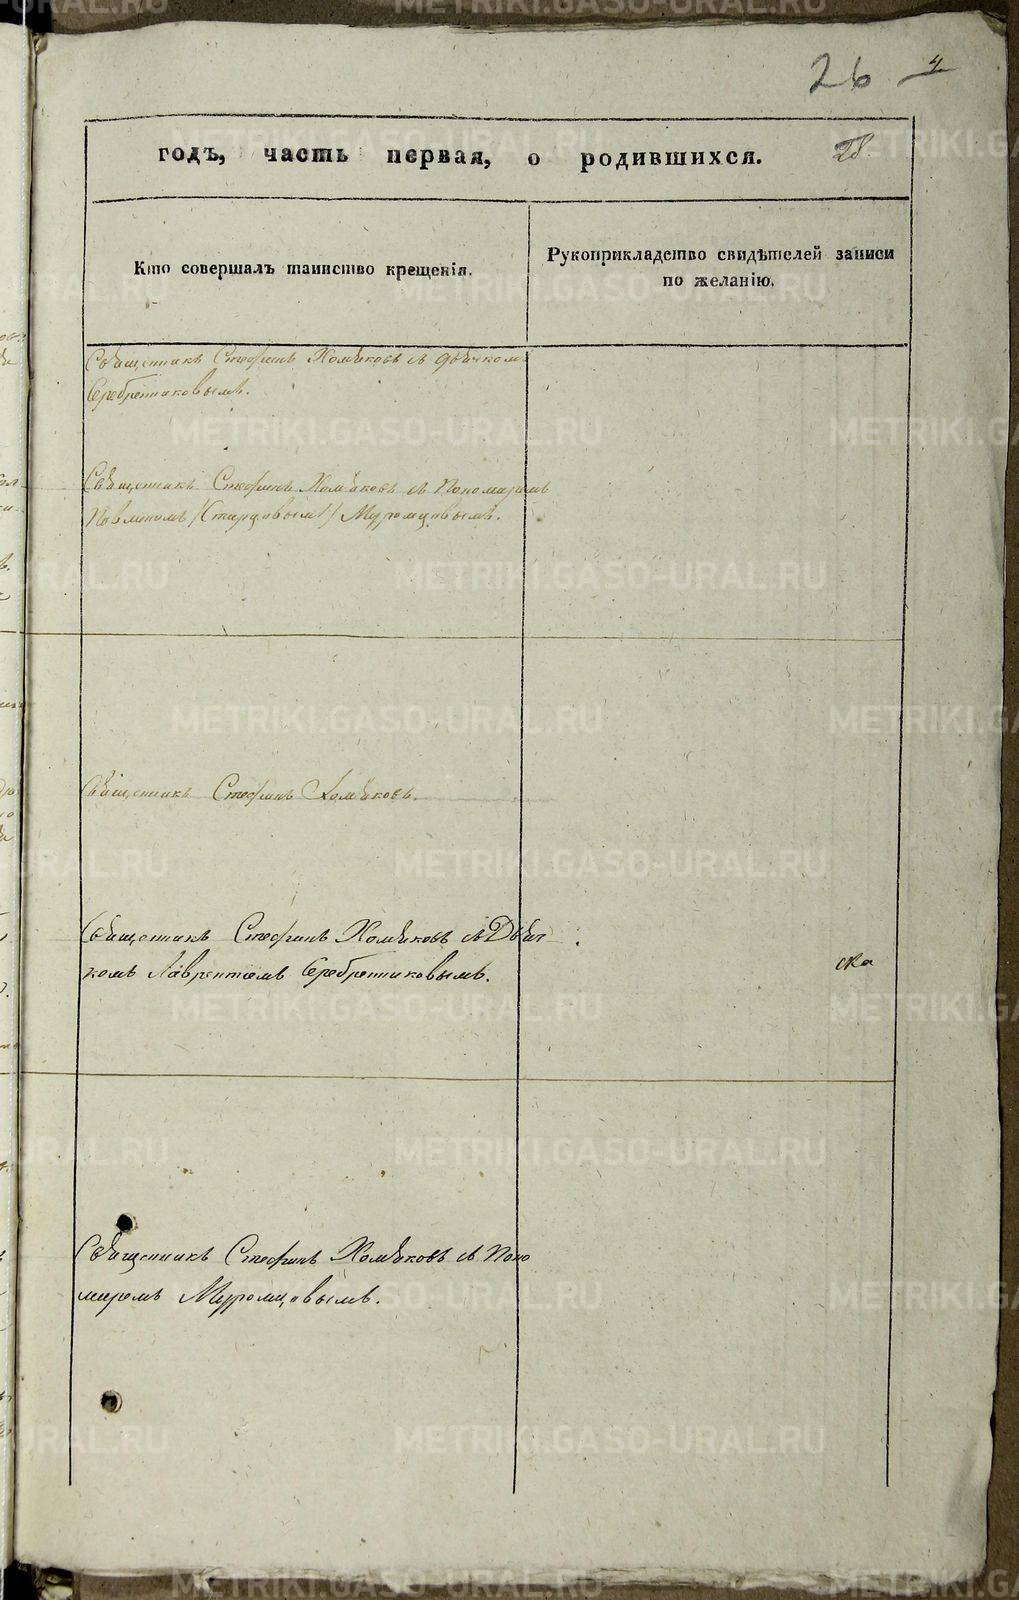 26 4
годъ, часть первая, о родившихся. 28.
Кто совершалъ таинство крещенія.
Рукоприкладство свидѣтелей записи
по желанію.
Священникъ Стефанъ Хомяковъ съ дьячком
Серебренниковымъ.
Священникъ Стефанъ Хомяковъ съ Пономаремъ
Муромцовымъ.
Священникъ Стефанъ Хомяковъ.
Священникъ Стефанъ Хомяковъ съ Дьяч
комъ Лаврентіемъ Серебренниковымъ.
Священникъ Стефанъ Хомяковъ съ Поно
маремъ Муромцовымъ.
METRIKI.GASO-URAL.RU